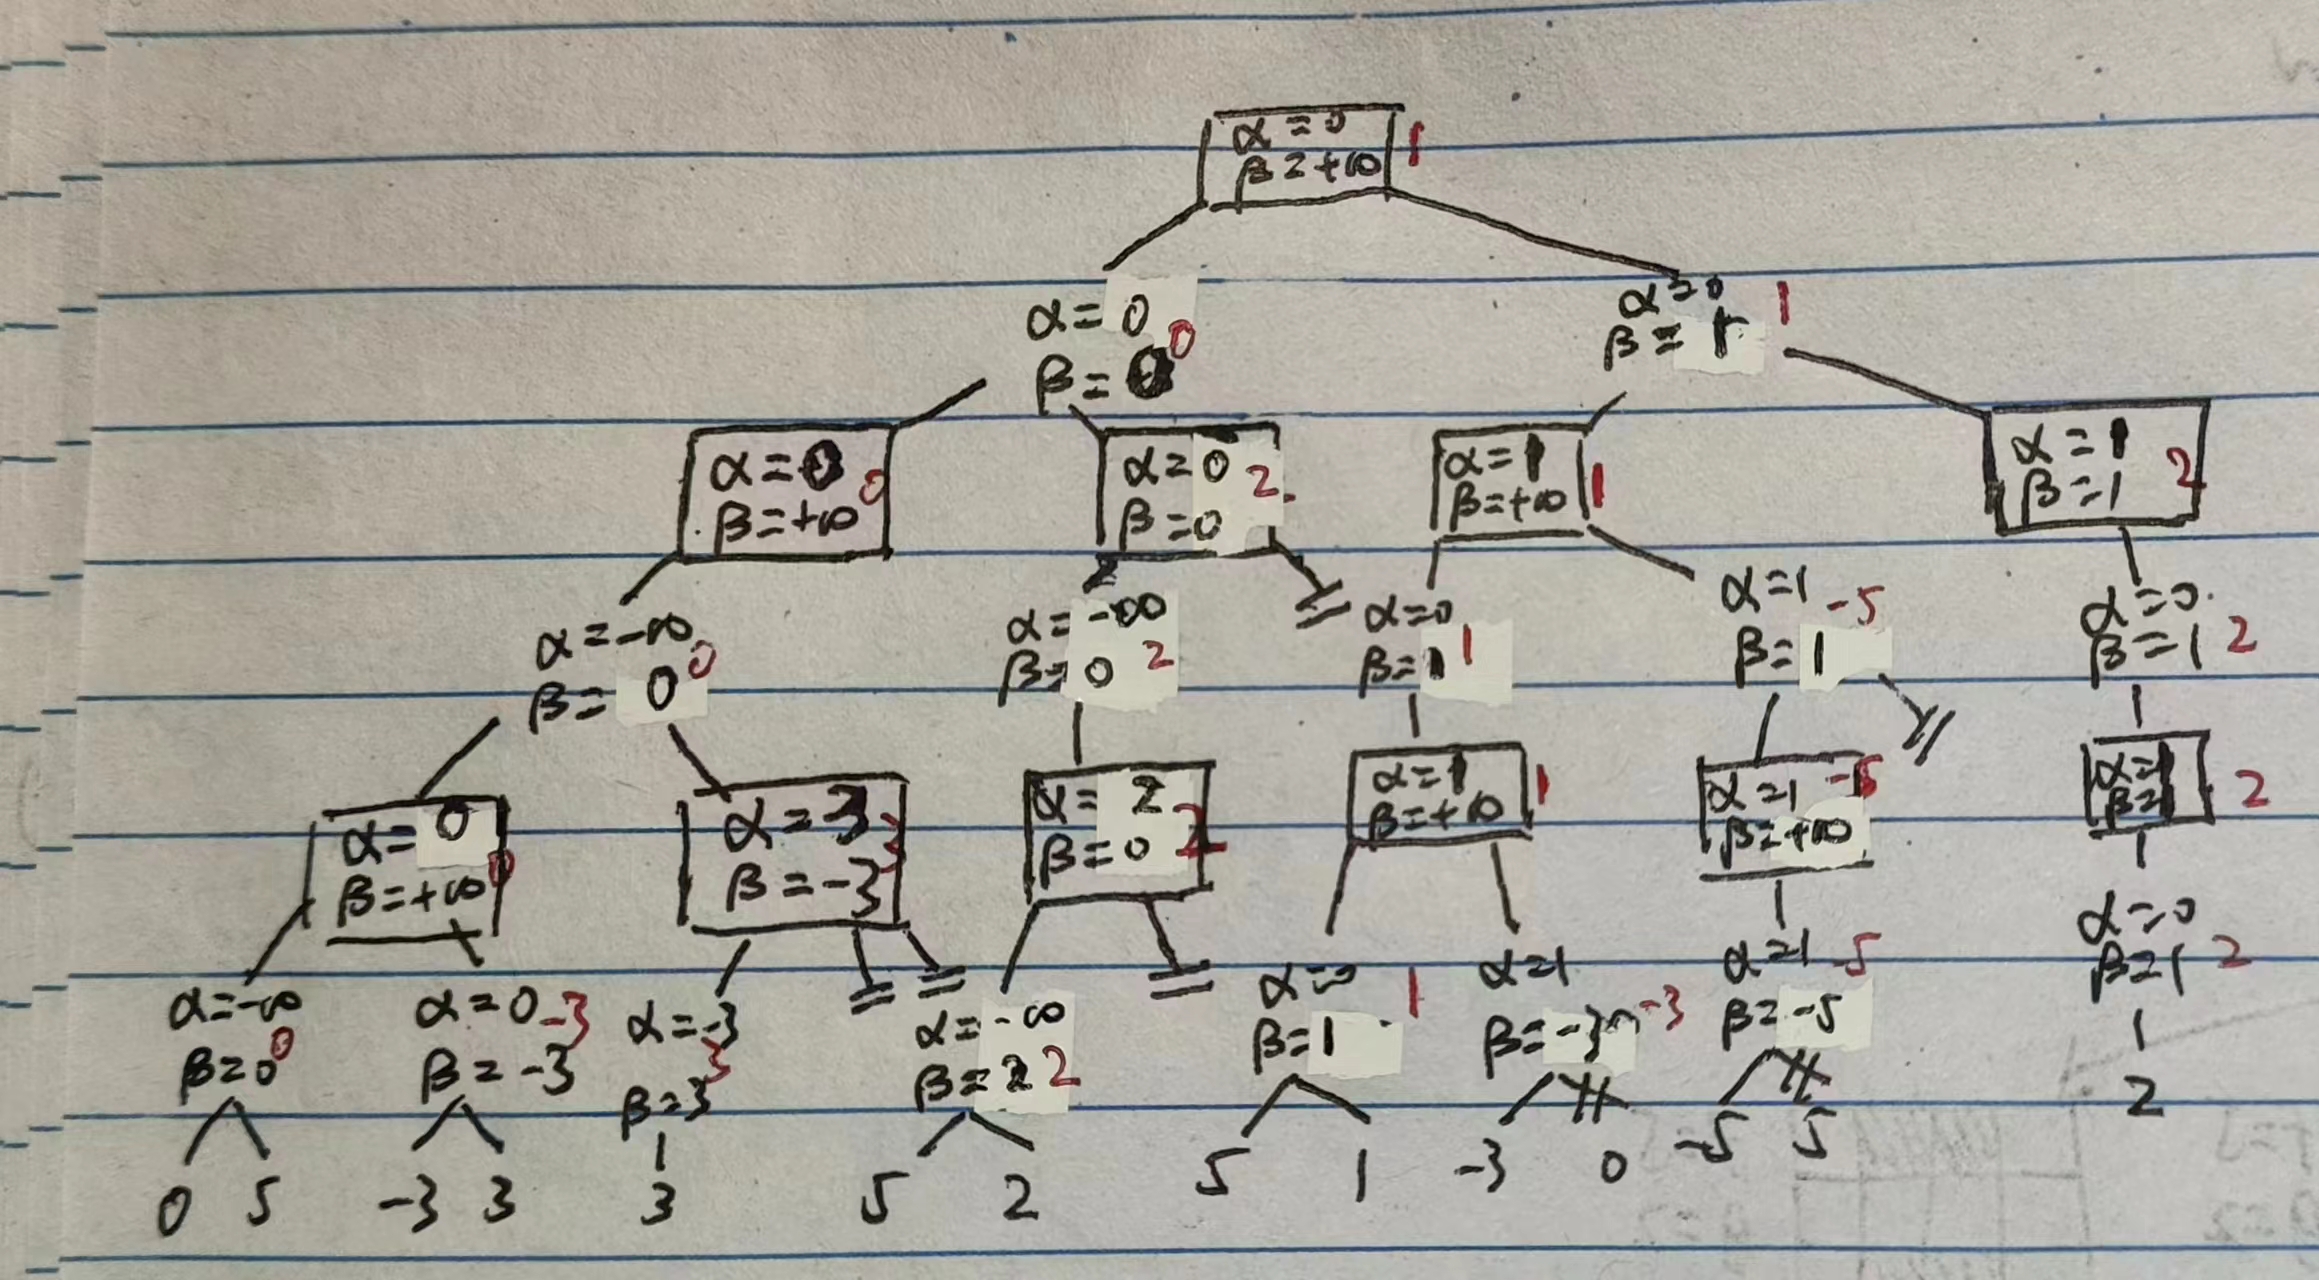 α = 0
β = +∞ 1
α = 0
β = 0 0
α = 0 1
β = 1
α = 0 0
β = +∞
α = 0 2
β = 0
α = 1
β = +∞ 1
α = 1 2
β = 1
α = -∞ 0
β = 0
α = -∞
β = 0 2
α = 0
β = 1 1
α = 1 -5
β = 1
α = 0
β = 1 2
α = 0
β = +∞ 0
α = 3 3
β = -3
α = 2
β = 0 2
α = 1
β = +∞ 1
α = 1 -5
β = +∞
α = 1
β = 1 2
α = -∞
β = 0 0
α = 0 -3
β = -3
α = -3 3
β = 3
α = -∞
β = 2 2
α = 0 1
β = 1
α = 1
β = -3 -3
α = 1 -5
β = -5
α = 0
β = 1 2
0 5 -3 3 3 5 2 5 1 -3 0 -5 5 2